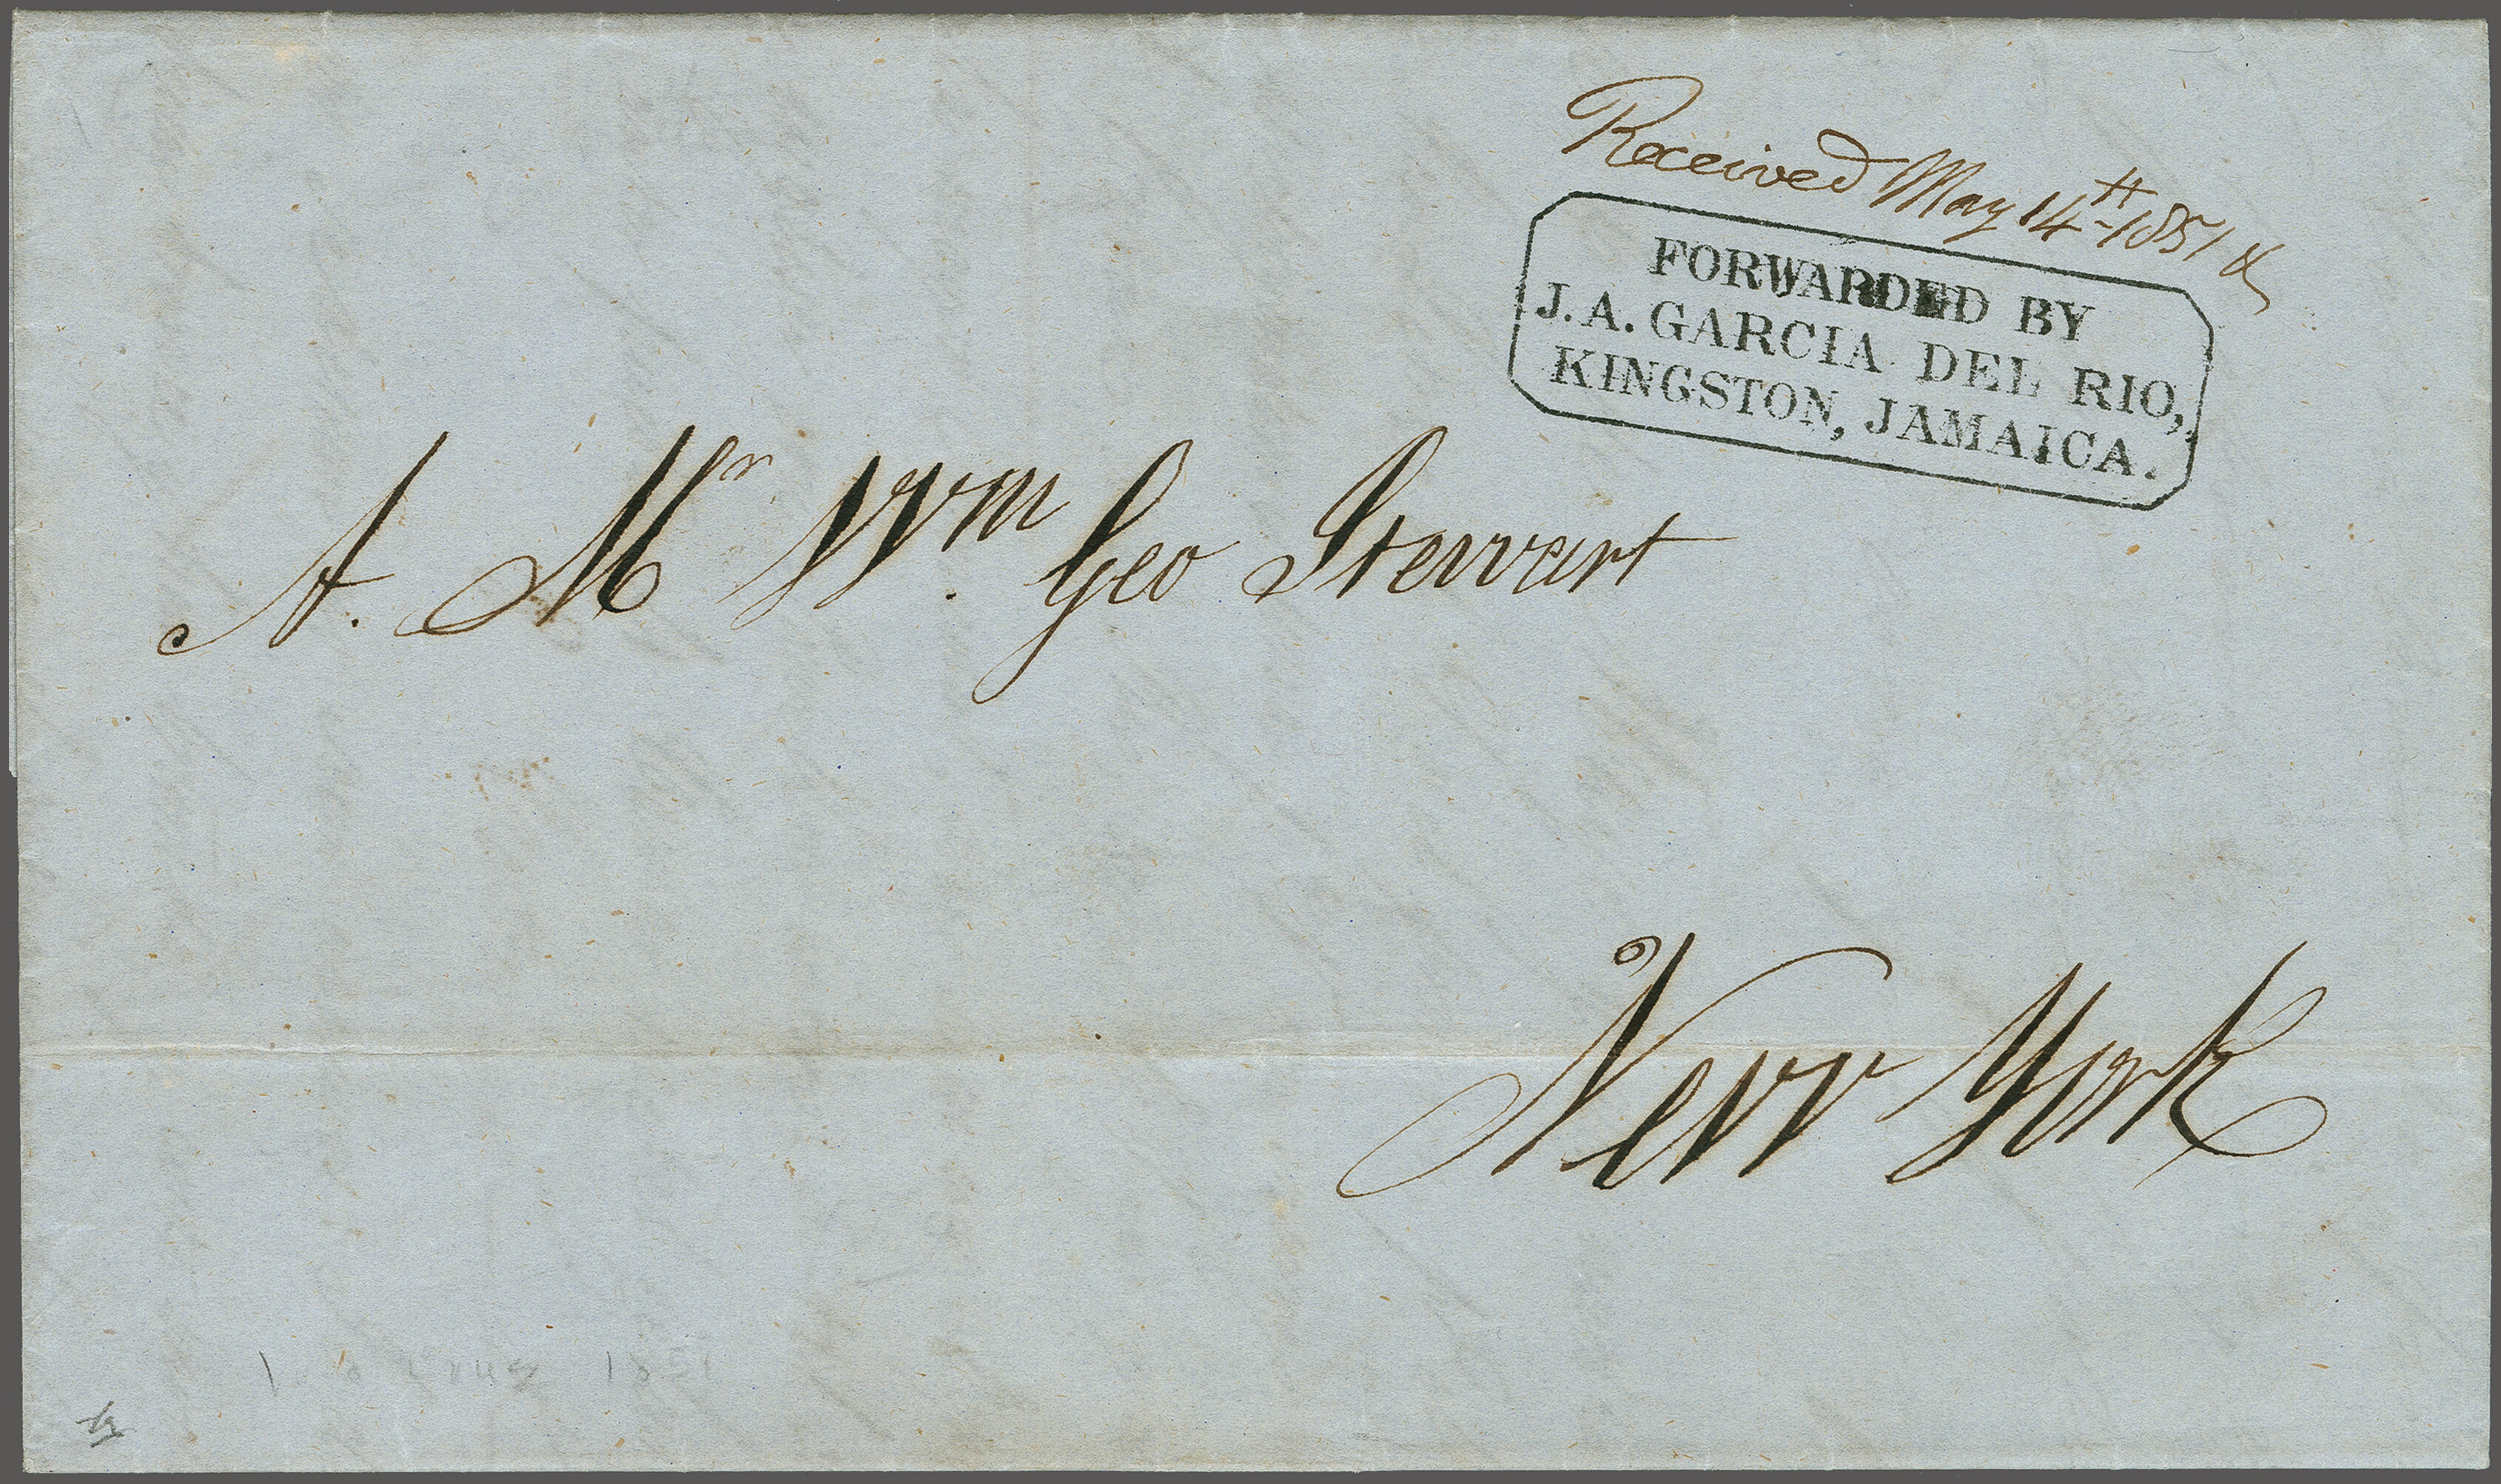 Received May 14th 1851
FORWARDED BY
J. A. GARCIA DEL RIO,
KINGSTON, JAMAICA.
A. Mr Wm. Geo Stewart
New York
1851